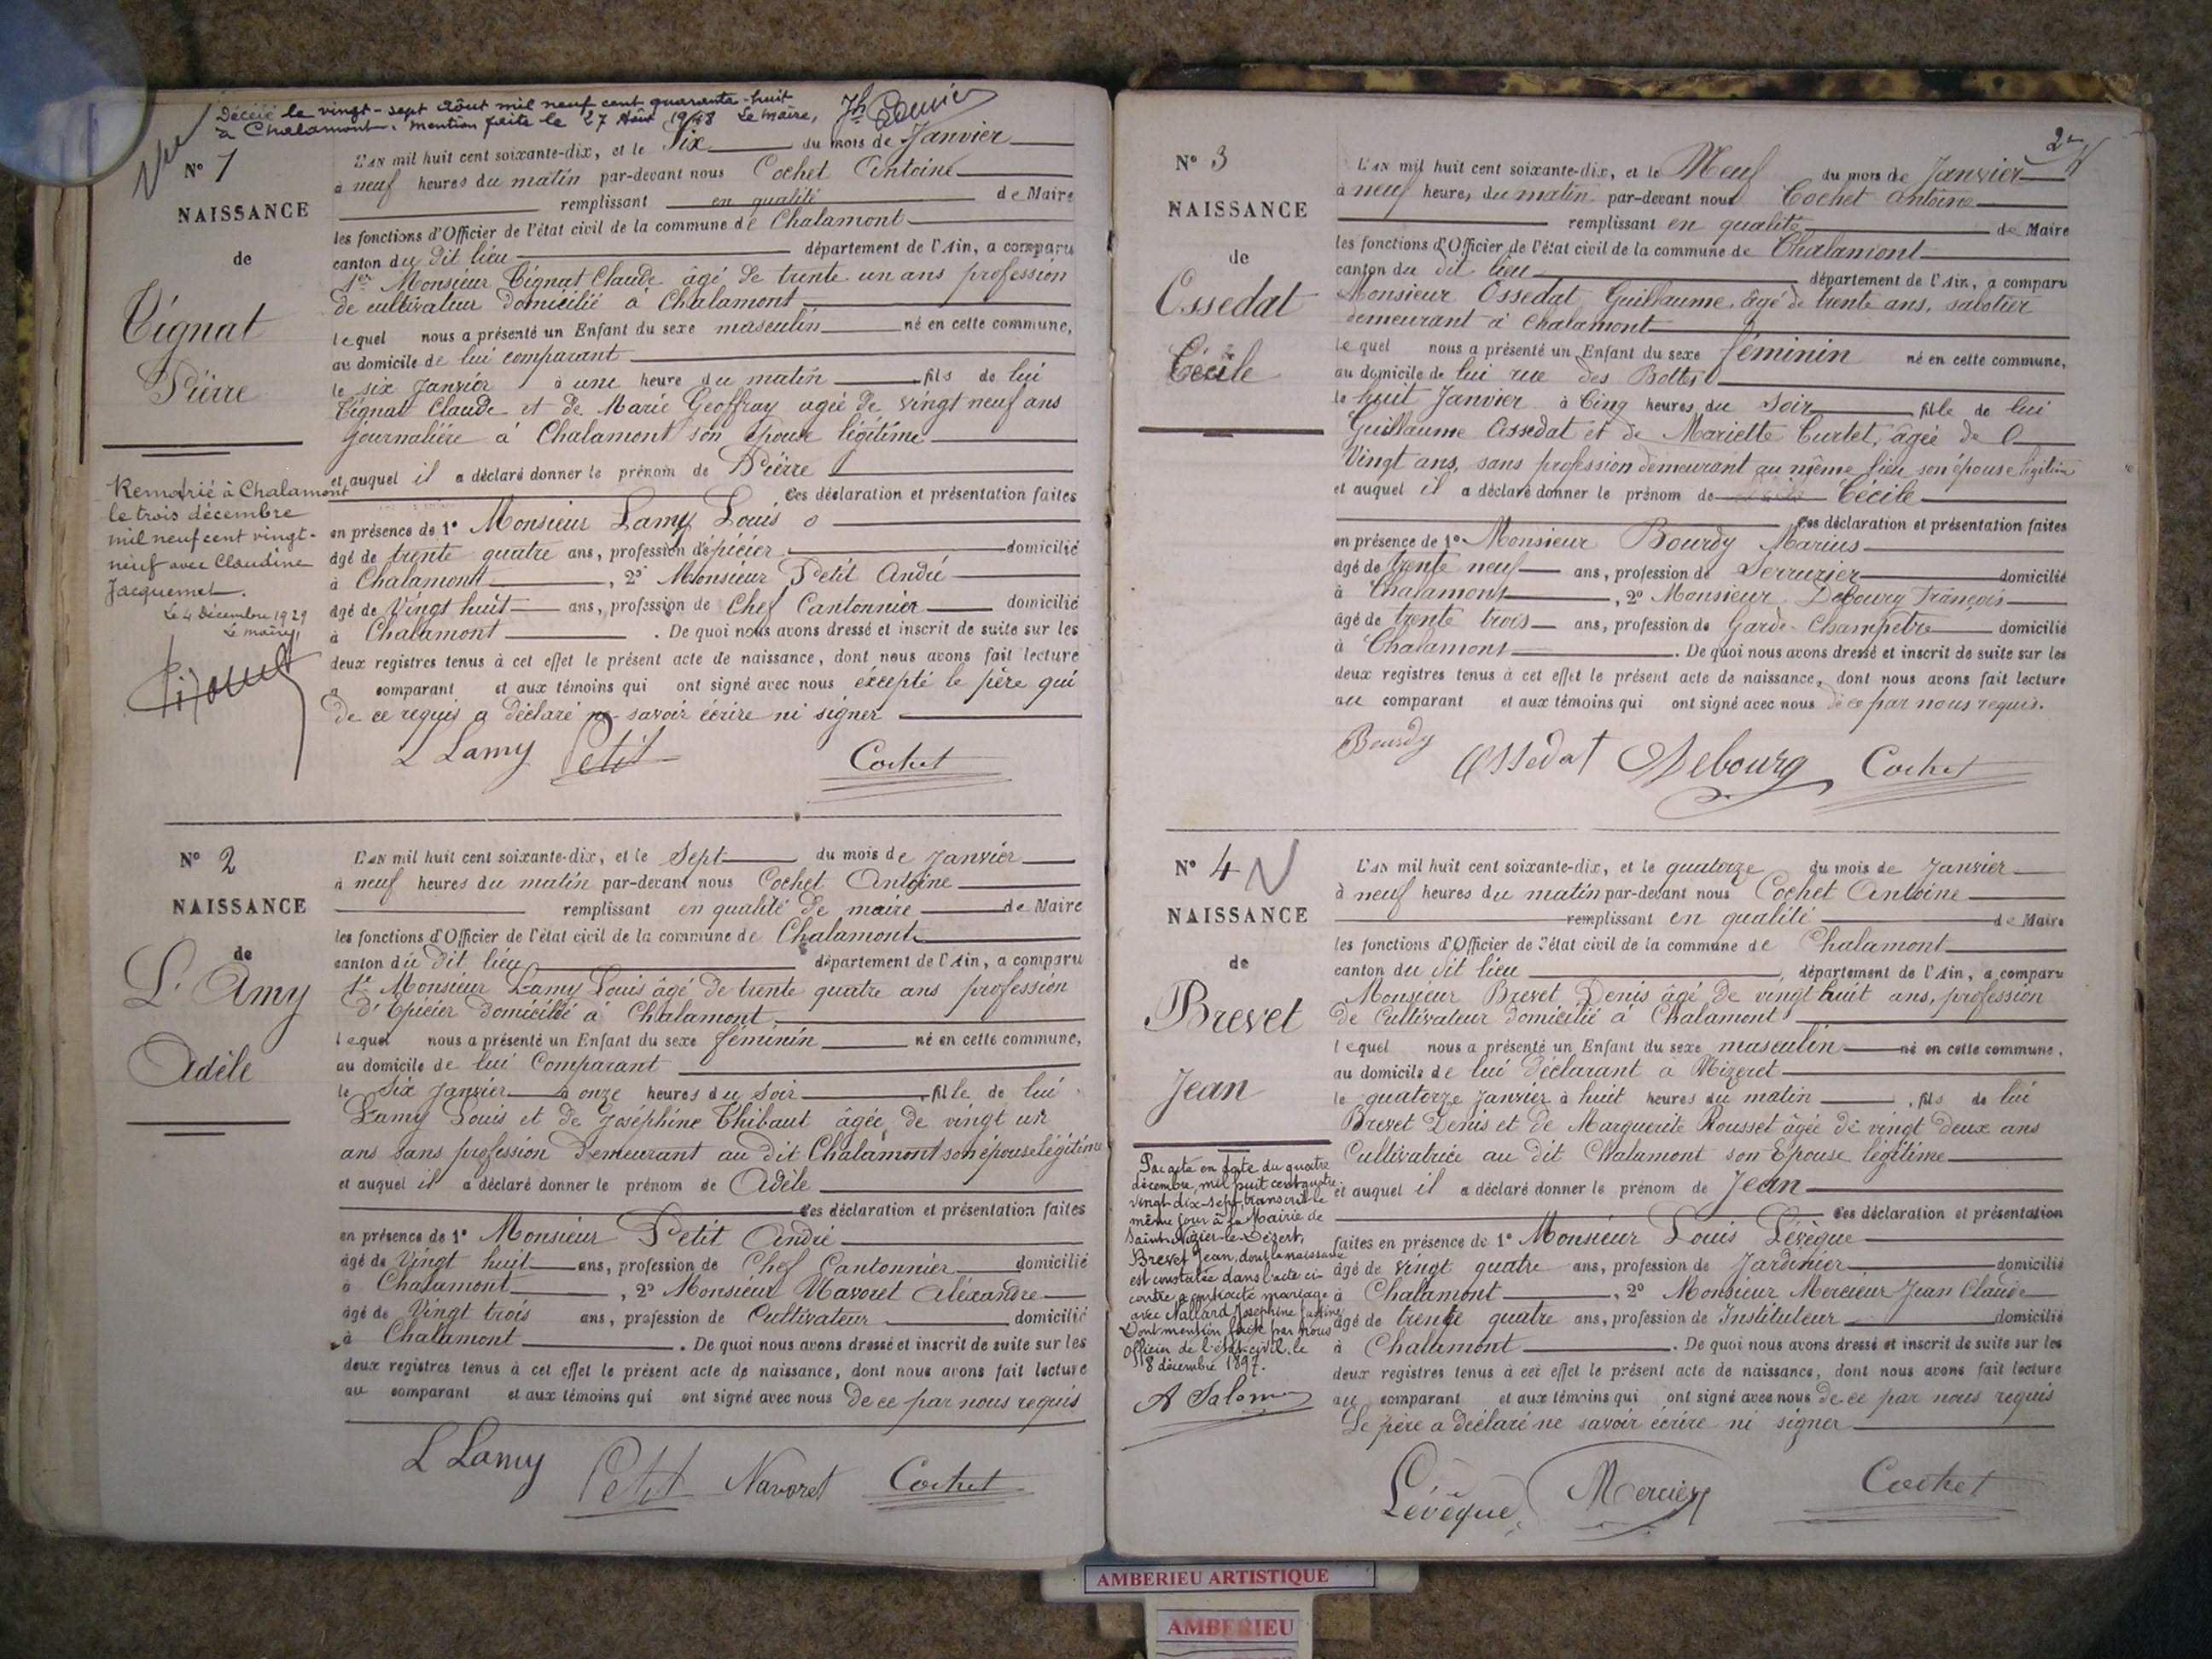 Décédé le vingt-sept Août mil neuf cent quarante-huit
à Chalamont. Mention faite le 27 Août 1948 Le Maire,
Vu
N° 1
NAISSANCE
de
Tignat
Pierre
Remarié à Chalamont
le trois décembre
mil neuf cent vingt-
neuf avec Claudine
Jacquemet.
Le 4 Décembre 1929
Le maire,
L'AN mil huit cent soixante-dix, et le Six du mois de Janvier
à neuf heures du matin par-devant nous Cochet Antoine
remplissant en qualité de Maire
les fonctions d'Officier de l'état civil de la commune de Chalamont
canton du dit lieu département de l'Ain, a comparu
1er Monsieur Tignat Claude âgé de trente un ans profession
de cultivateur domicilié à Chalamont
lequel nous a présenté un Enfant du sexe masculin né en cette commune,
au domicile de lui comparant
le six Janvier à une heure du matin fils de lui
Tignat Claude et de Marie Geoffray agée de vingt neuf ans
journalière à Chalamont son épouse légitime
et auquel il a déclaré donner le prénom de Pierre
Ces déclaration et présentation faites
en présence de 1° Monsieur Lamy Louis
âgé de trente quatre ans, profession d'épicier domicilié
à Chalamont, 2° Monsieur Petit André
âgé de Vingt huit ans, profession de Chef Cantonnier domicilié
à Chalamont. De quoi nous avons dressé et inscrit de suite sur les
deux registres tenus à cet effet le présent acte de naissance, dont nous avons fait lecture
comparant et aux témoins qui ont signé avec nous excepté le père qui
de ce requis a déclaré ne savoir écrire ni signer
L Lamy Petit Cochet
N° 2
NAISSANCE
de
L'Amy
Adèle
L'AN mil huit cent soixante-dix, et le Sept du mois de Janvier
à neuf heures du matin par-devant nous Cochet Antoine
remplissant en qualité de maire de Maire
les fonctions d'Officier de l'état civil de la commune de Chalamont
canton du dit lieu département de l'Ain, a comparu
1er Monsieur Lamy Louis âgé de trente quatre ans profession
d'Epicier domicilié à Chalamont
lequel nous a présenté un Enfant du sexe féminin né en cette commune,
au domicile de lui Comparant
le Six Janvier à onze heures du Soir, fille de lui
Lamy Louis et de Joséphine Thibaut âgée de vingt un
ans sans profession Demeurant au dit Chalamont son épouse légitime
et auquel il a déclaré donner le prénom de Adèle
Ces déclaration et présentation faites
en présence de 1° Monsieur Petit André
âgé de Vingt huit ans, profession de Chef Cantonnier domicilié
à Chalamont, 2° Monsieur Navoret Aléxandre
âgé de Vingt trois ans, profession de Cultivateur domicilié
à Chalamont. De quoi nous avons dressé et inscrit de suite sur les
deux registres tenus à cet effet le présent acte de naissance, dont nous avons fait lecture
au comparant et aux témoins qui ont signé avec nous De ce par nous requis
L Lamy Petit Navoret Cochet
2
N° 3
NAISSANCE
de
Ossedat
Cécile
L'AN mil huit cent soixante-dix, et le Neuf du mois de Janvier
à neuf heures du matin par-devant nous Cochet Antoine
remplissant en qualité de Maire
les fonctions d'Officier de l'état civil de la commune de Chalamont
canton du dit lieu département de l'Ain, a comparu
Monsieur Ossedat Guillaume, âgé de trente ans, sabotier
demeurant à Chalamont
lequel nous a présenté un Enfant du sexe féminin né en cette commune,
au domicile de lui rue des Bottes
le huit Janvier à Cinq heures du Soir fille de lui
Guillaume Ossedat et de Mariette Curtet, âgée de
Vingt ans, sans profession demeurant au même lieu son épouse légitime
et auquel il a déclaré donner le prénom de Cécile
Ces déclaration et présentation faites
en présence de 1° Monsieur Bourdy Marius
âgé de trente neuf ans, profession de Serrurier domicilié
à Chalamont, 2° Monsieur Debourg François
âgé de trente trois ans, profession de Garde-Champêtre domicilié
à Chalamont. De quoi nous avons dressé et inscrit de suite sur les
deux registres tenus à cet effet le présent acte de naissance, dont nous avons fait lecture
au comparant et aux témoins qui ont signé avec nous de ce par nous requis.
Bourdy Ossedat Debourg Cochet
N° 4
NAISSANCE
de
Brevet
Jean
Par acte en date du quatre
décembre mil huit cent quatre-
vingt-dix-sept, transcrit le
même jour à la Mairie de
Saint-Nizier-le-Désert,
Brevet Jean, dont la naissance
est constatée dans l'acte ci-
contre a contracté mariage
avec Nallard Josephine
Dont mention faite par nous
Officier de l'état-civil, le
8 décembre 1897.
A Salom
L'AN mil huit cent soixante-dix, et le quatorze du mois de Janvier
à neuf heures du matin par-devant nous Cochet Antoine
remplissant en qualité de Maire
les fonctions d'Officier de l'état civil de la commune de Chalamont
canton du dit lieu, département de l'Ain, a comparu
Monsieur Brevet Denis âgé de vingt huit ans, profession
de Cultivateur domicilié à Chalamont
lequel nous a présenté un Enfant du sexe masculin né en cette commune,
au domicile de lui déclarant à Mizeret
le quatorze Janvier à huit heures du matin, fils de lui
Brevet Denis et de Marguerite Rousset âgée de vingt deux ans
Cultivatrice au dit Chalamont son Epouse légitime
et auquel il a déclaré donner le prénom de Jean
Ces déclaration et présentation
faites en présence de 1° Monsieur Louis Lévèque
âgé de vingt quatre ans, profession de Jardinier domicilié
à Chalamont, 2° Monsieur Mercieur Jean Claude
âgé de trente quatre ans, profession de Instituteur domicilié
à Chalamont. De quoi nous avons dressé et inscrit de suite sur les
deux registres tenus à cet effet le présent acte de naissance, dont nous avons fait lecture
au comparant et aux témoins qui ont signé avec nous de ce par nous requis
Le père a déclaré ne savoir écrire ni signer
Lévêque Mercier Cochet
AMBERIEU ARTISTIQUE
AMBERIEU